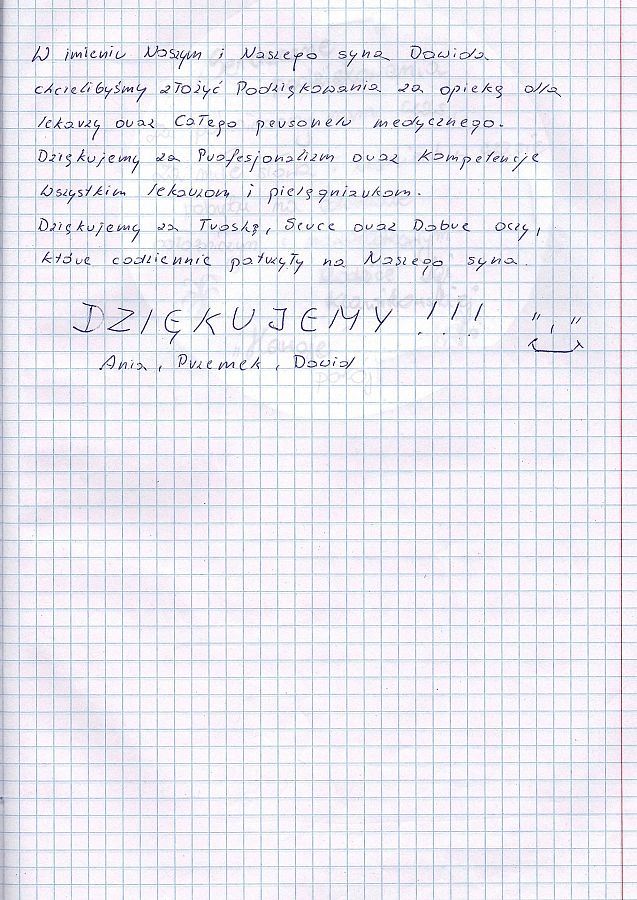 W imieniu Naszym i Naszego syna Dawida
chcielibyśmy złożyć Podziękowania za opiekę dla
lekarzy oraz Całego personelu medycznego.
Dziękujemy za Profesjonalizm oraz Kompetencje
Wszystkim lekarzom i pielęgniarkom.
Dziękujemy za Troskę, Serce oraz Dobre oczy,
które codziennie patrzyły na Naszego syna.
DZIĘKUJEMY !!!
Ania, Przemek, Dawid